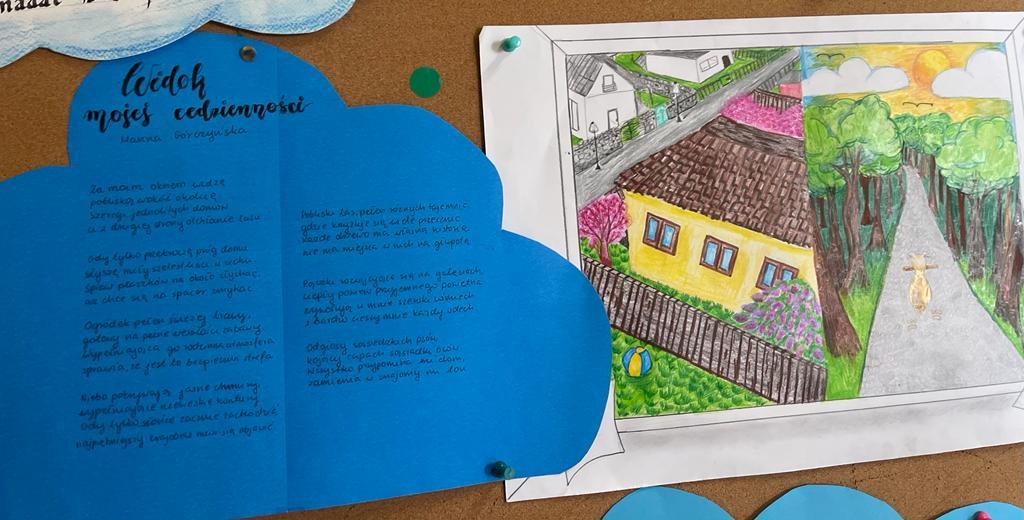 Widok
mojej codzienności
Hanna Górczyńska
Za moim oknem widzę
pobliską wokół okolicę
Szereg jednolitych domów
a z drugiej strony otchłanie lasu
Gdy tylko przekroczę próg domu
słyszę miły szelest liści w uchu
Śpiew ptaszków na około słychać,
aż chce się na spacer zmykać
Ogródek pełen świeżej trawy,
gotowy na pełne wesołości zabawy
wypełniająca go rodzinna atmosfera
sprawia, że jest to bezpieczna strefa
Niebo pokrywają jasne chmury,
wypełniające niebieskie kontury
Gdy tylko słońce zacznie zachodzić
najpiękniejszy krajobraz musi się objawić
Pobliski las, pełen różnych tajemnic,
gdzie kryje się wiele przecznic
Każde drzewo ma własną historię
nie ma miejsca w nich na głupotę
Pąki rozwijające się na gałęziach
ciepły powiew przyjemnego powietrza
wywołują u mnie szeroki uśmiech
i bardzo cieszy mnie każdy oddech
Odgłosy sąsiedzkich psów,
kojący zapach sąsiadki bzów.
Wszystko przypomina mi dom,
zamienia w znajomy mi ton